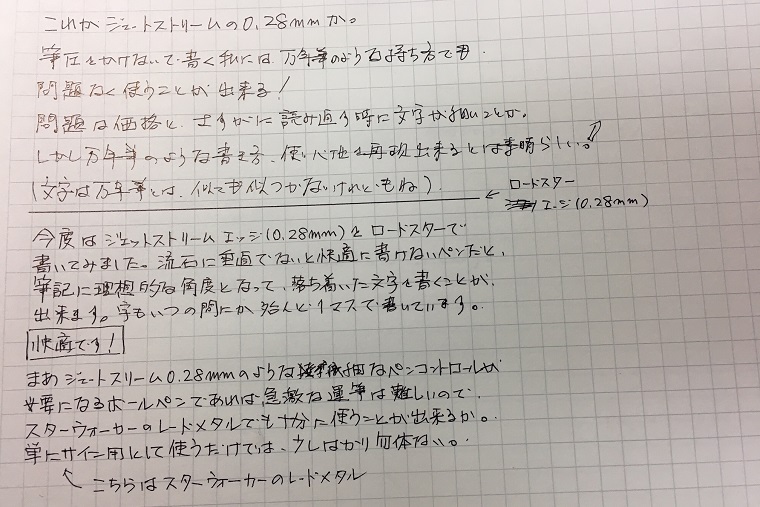 これがジェットストリームの0.28mmか。
筆圧をかけないで書く私には、万年筆のような持ち方でも
問題なく使うことが出来る!
問題は価格と、さすがに読み直す時に文字が細いことか。
しかし万年筆のような書き方、使い心地を再現出来るとは素晴らしい。
(文字は万年筆とは、似ても似つかないけれどもね).
← ロードスター
エッジ(0.28mm)
今度はジェットストリームエッジ(0.28mm)とロードスターで
書いてみました。流石に垂直でないと快適に書けないペンだと、
筆記に理想的な角度となって、落ち着いた文字を書くことが、
出来ます。字もいつの間にか殆んど1マスで書いています。
快適です!
まあジェットストリーム0.28mmのような繊細なペンコントロールが
必要になるボールペンであれば、急激な運筆は難しいので、
スターウォーカーのレードメタルでも十分に使うことが出来るか。
単にサイン用として使うだけでは、少しばかり勿体ない。
← こちらはスターウォーカーのレードメタル